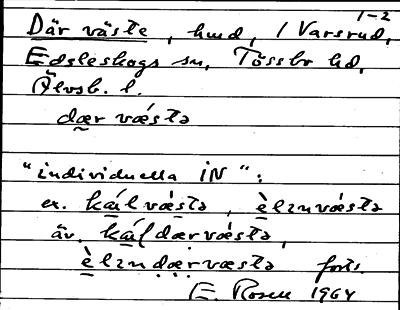 1-2
Där väste, hmd, / Varsrud,
Edsleskogs sn, Tössbo hd,
Älvsb. l.
dær vǽstə
"individuella IN":
ex. kál vǽstə, èlɪnvǽstə
äv. káldærvǽstə,
èlɪndærvæstə forts.
E. Rosell 1964